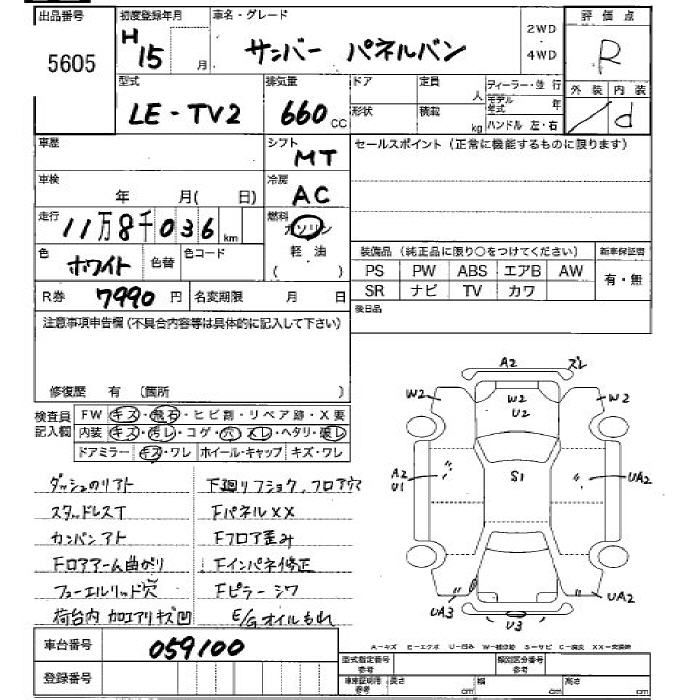 出品番号 初度登録年月 車名・グレード 評価点
5605 H15 月 サンバー パネルバン 2WD 4WD R
型式 排気量 ドア 定員 人 ディーラー・並行 外装 内装
LE-TV2 660cc 形状 積載 kg モデル年式 年 ハンドル 左・右 / d
車歴 シフト MT セールスポイント(正常に機能するものに限ります)
車検 年 月( 日) 冷房 AC
走行 11万8千036km 燃料 ガソリン
色 ホワイト 色替 色コード 軽油 ( )
装備品(純正品に限り○をつけてください) 新車保証書
PS PW ABS エアB AW 有・無
SR ナビ TV カワ
R券 7990円 名変期限 月 日 後日品
注意事項申告欄(不具合内容等は具体的に記入して下さい)
修復歴 有 (箇所 )
検査員記入欄 FW キズ・飛石・ヒビ割・リペア跡・X要
内装 キズ・汚レ・コゲ・穴・スレ・ヘタリ・破レ
ドアミラー キズ・ワレ ホイール・キャップ キズ・ワレ
ダッシュのリアト 下廻リフショク,フロア穴
スタッドレスT FパネルXX
カンバンアト Fフロア歪み
Fロアアーム曲がり Fインパネ修正
フューエルリッド穴 Fピラーシワ
荷台内カロエアリキズ凹 E/Gオイルもれ
A2 ズレ
W2 W2 W2
U2
A2 S1 UA2
U1
UA3 U3 UA2
車台番号 059100
登録番号
A-キズ E-エクボ U-凹み W-補修跡 S-サビ C-腐食 XX-交換跡
型式指定番号 参考 類別区分番号 参考
車車限用 参考 長さ cm 幅 cm 高さ cm